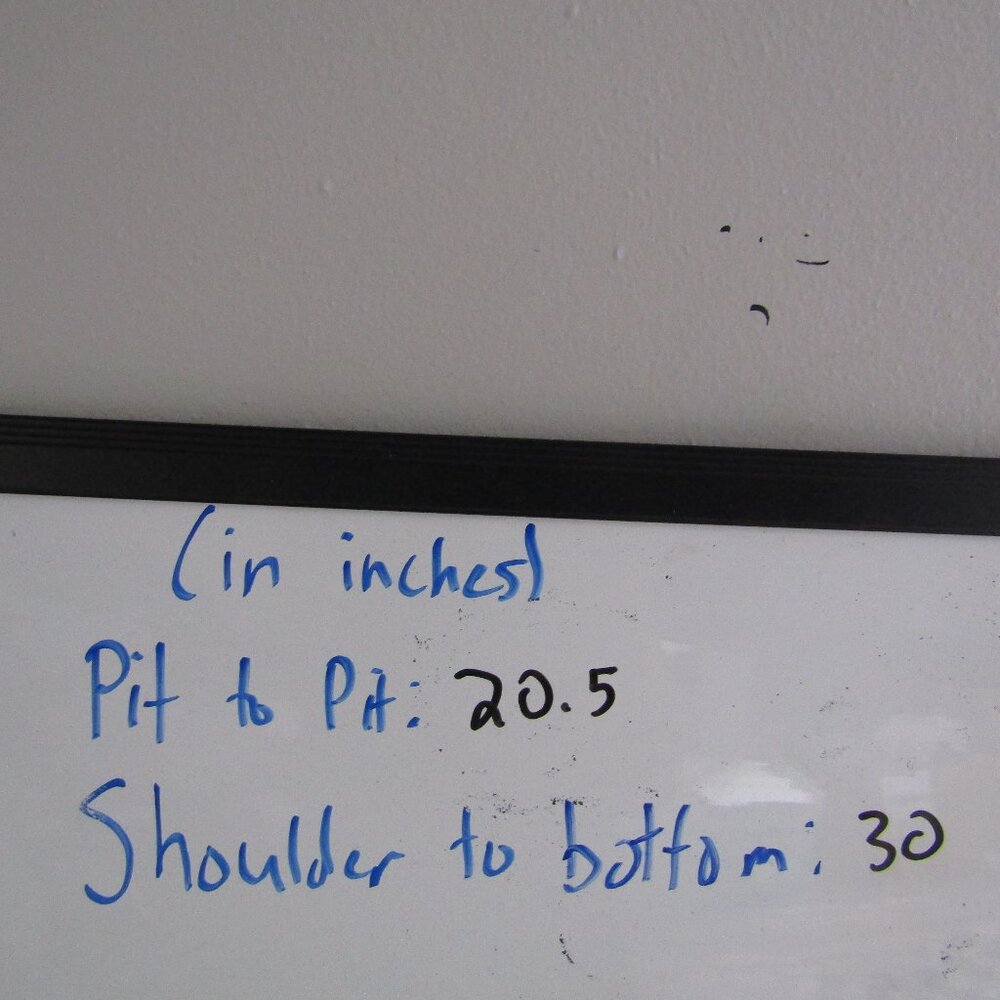 (in inches)
Pit to Pit: 20.5
Shoulder to bottom: 30